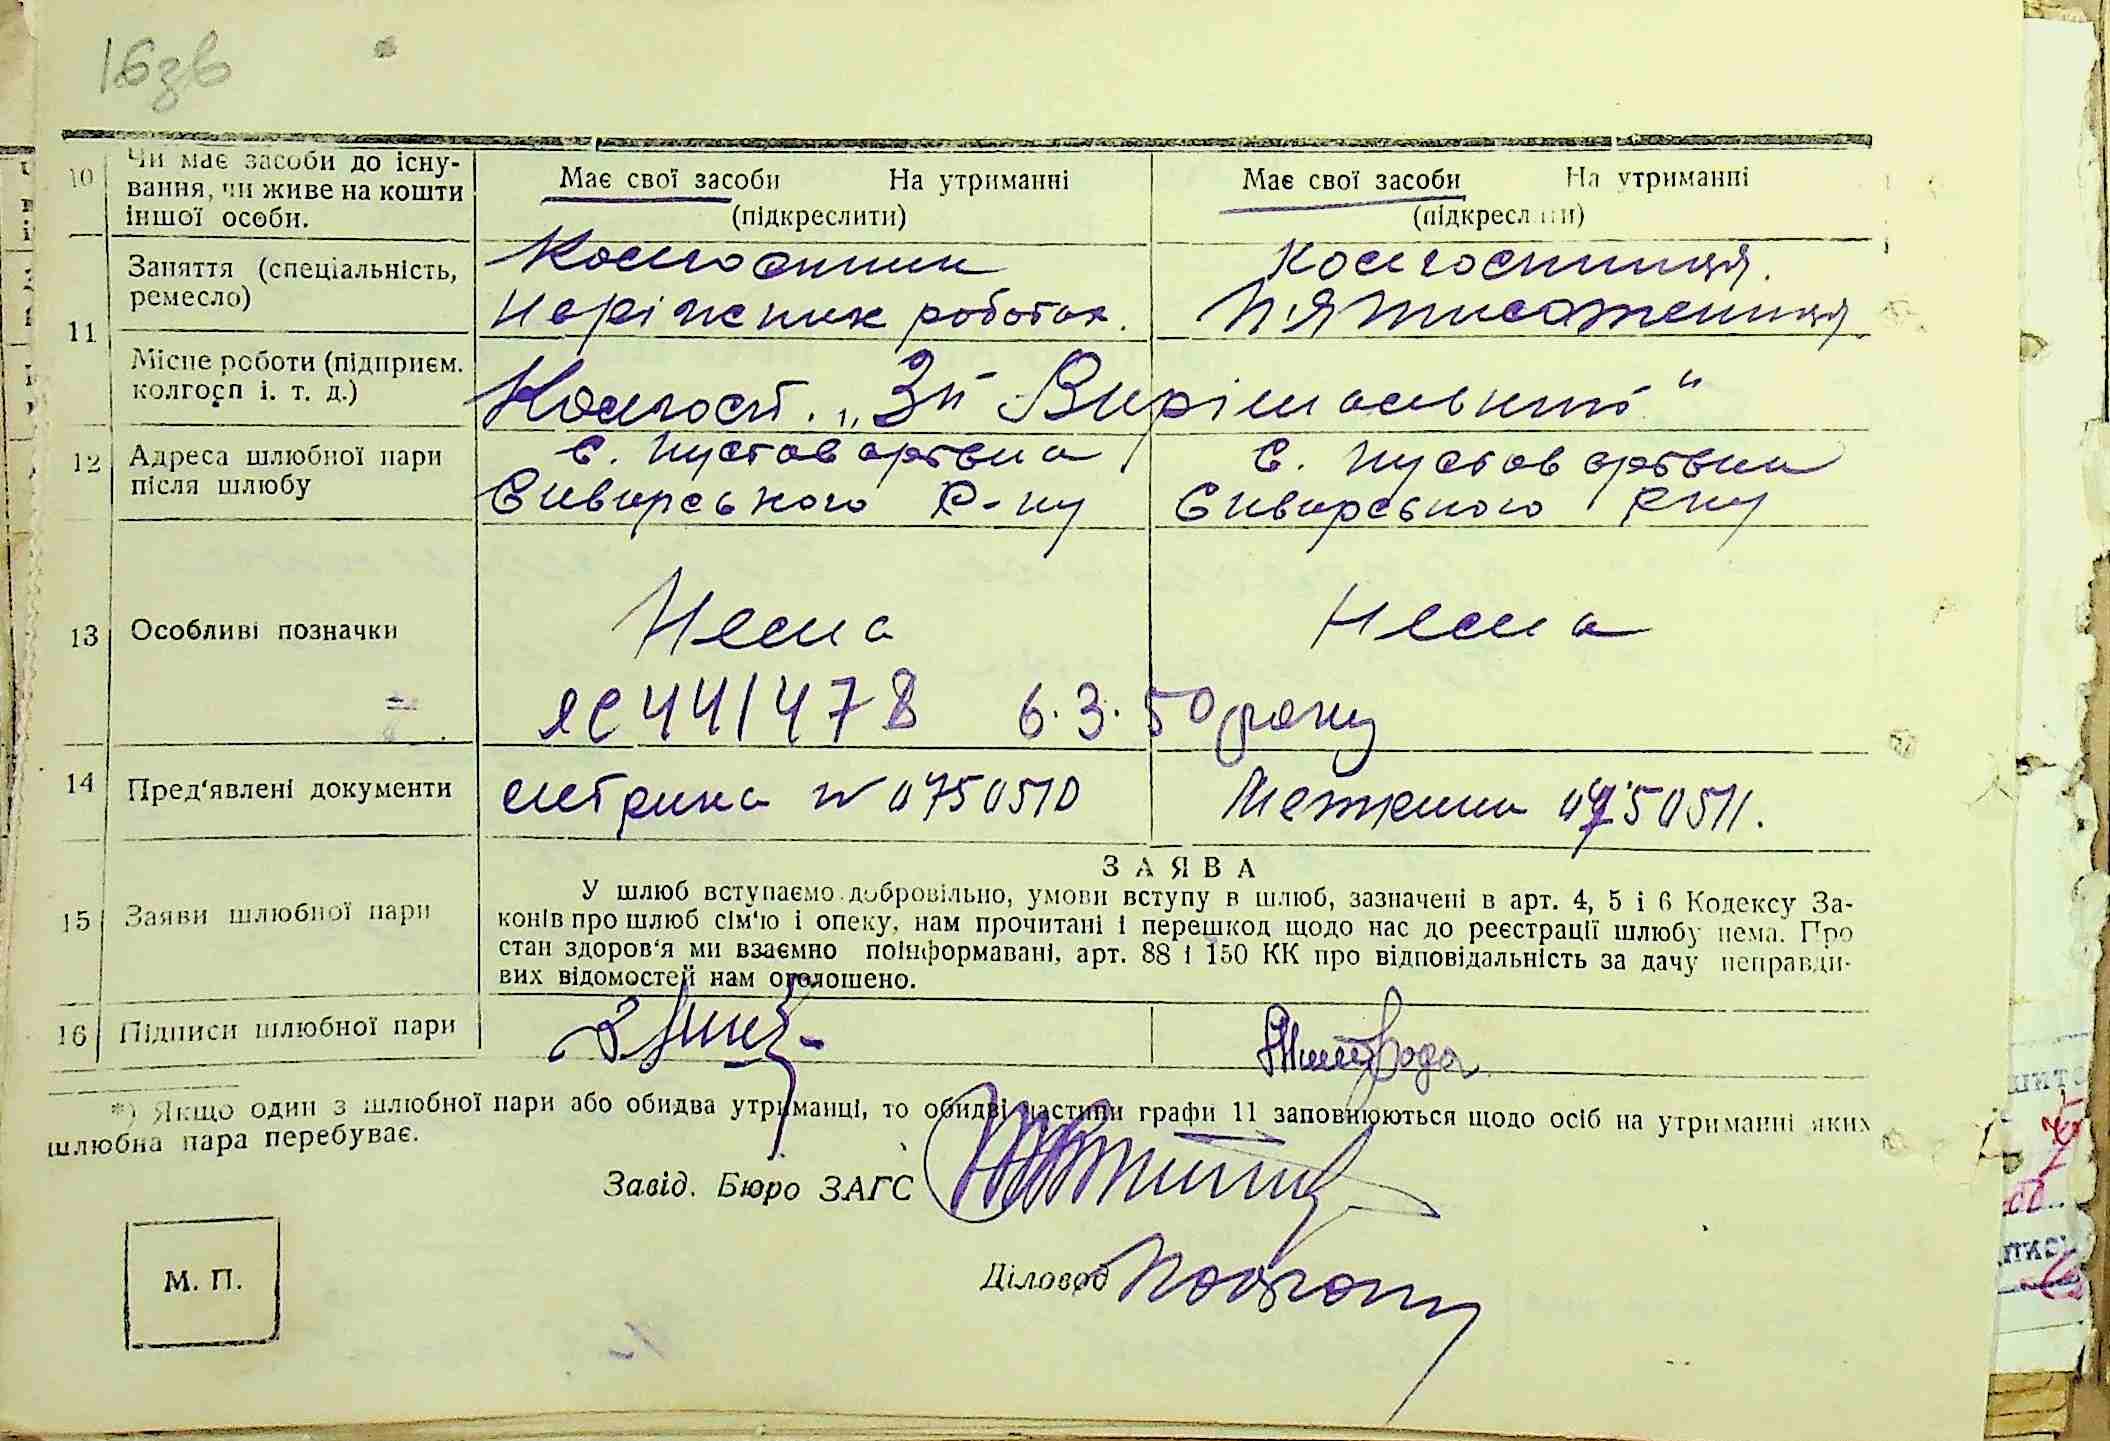 16зв
10 Чи має засоби до існу-
вання, чи живе на кошти
іншої особи.
Має свої засоби На утриманні
(підкреслити)
Має свої засоби На утриманні
(підкреслити)
11
Заняття (спеціальність,
ремесло)
Колгоспник
на різних роботах.
Колгоспниця.
П'ятисотениця
Місце роботи (підприєм.
колгосп і. т. д.)
Колгосп. „3й Вирішальний"
12 Адреса шлюбної пари
після шлюбу
С. Пустоварівка
Сквирського Р-ну
С. Пустоварівка
Сквирського Рну
13 Особливі позначки
Нема
Нема
ЯС 441478 6.3.50 року
14 Пред'явлені документи
метрика № 0750510
Метрика 0750511.
15 Заяви шлюбної пари
ЗАЯВА
У шлюб вступаємо добровільно, умови вступу в шлюб, зазначені в арт. 4, 5 і 6 Кодексу За-
конів про шлюб сім'ю і опеку, нам прочитані і перешкод щодо нас до реєстрації шлюбу нема. Про
стан здоров'я ми взаємно поінформавані, арт. 88 і 150 КК про відповідальність за дачу неправди-
вих відомостей нам оголошено.
16 Підписи шлюбної пари
*) Якщо один з шлюбної пари або обидва утриманці, то обидві частини графи 11 заповнюються щодо осіб на утриманні яких
шлюбна пара перебуває.
Завід. Бюро ЗАГС
Діловод
М. П.